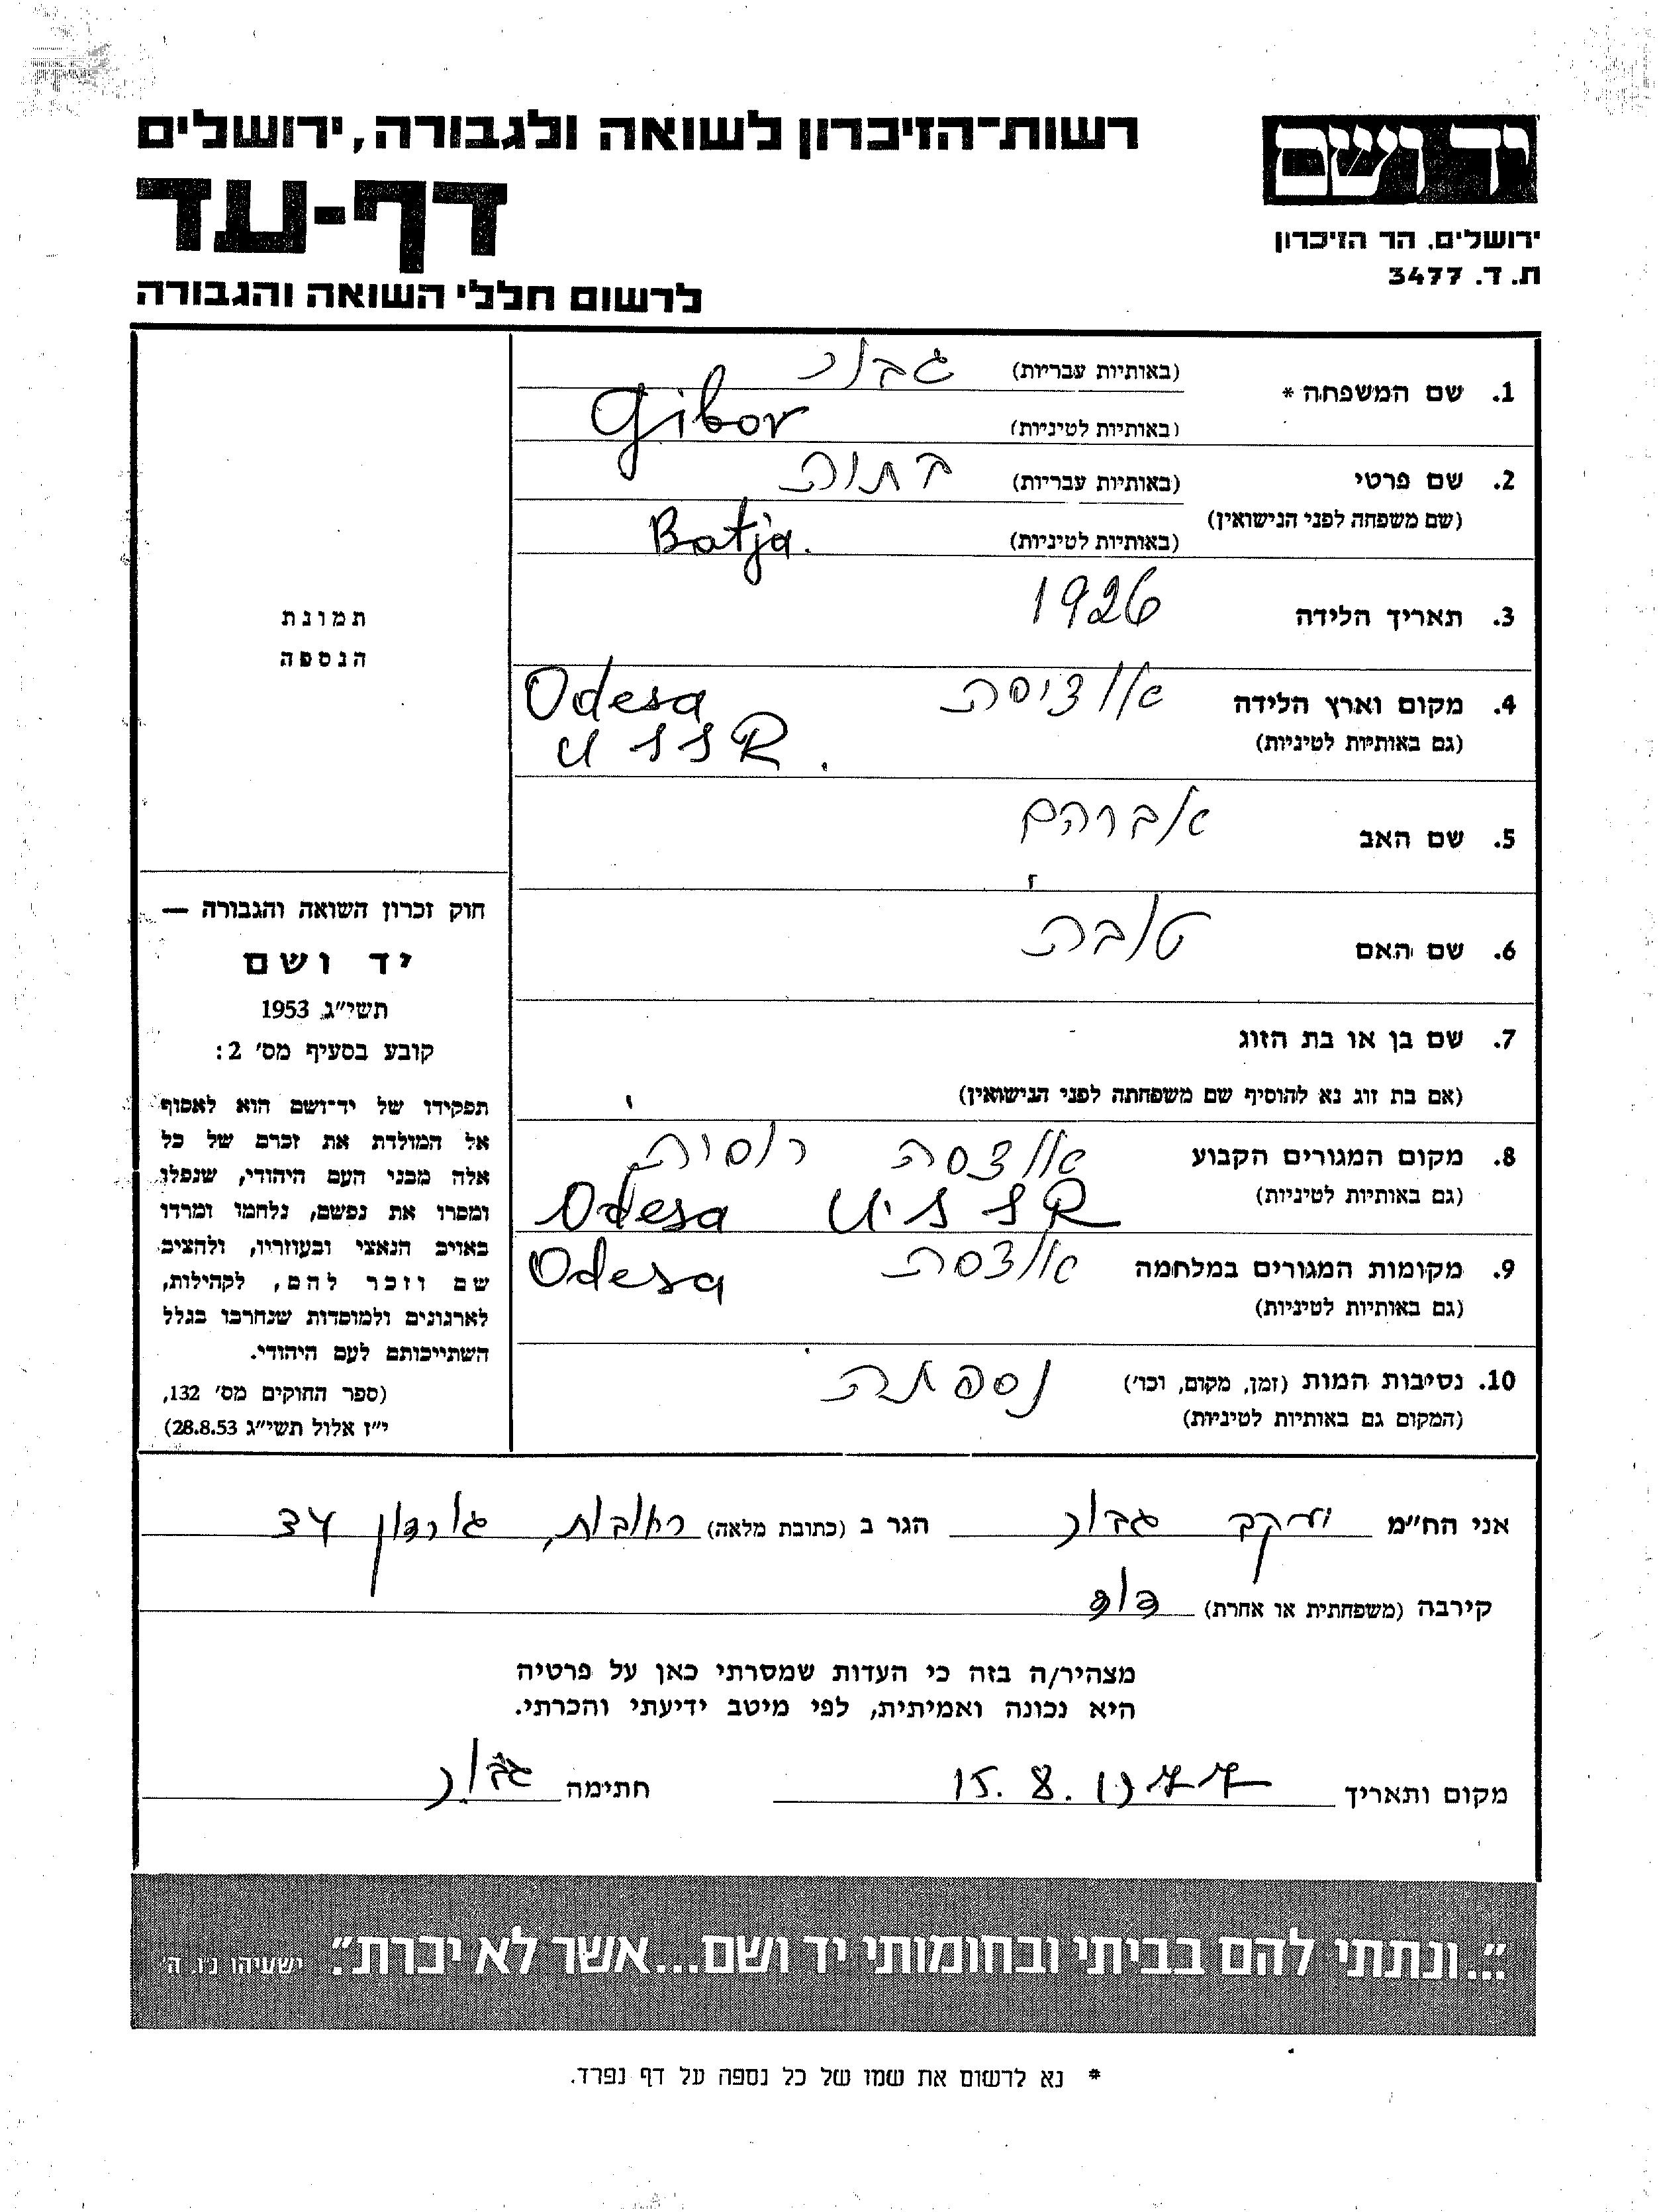 רשות־הזיכרון לשואה ולגבורה, ירושלים
דף-עד
לרשום חללי השואה והגבורה
יד ושם
ירושלים, הר הזיכרון
ת. ד. 3477
1. שם המשפחה * (באותיות עבריות) גבור
(באותיות לטיניות) Gibor
2. שם פרטי (באותיות עבריות) בתיה
(שם משפחה לפני הנישואין)
(באותיות לטיניות) Batja.
3. תאריך הלידה 1926
4. מקום וארץ הלידה אודיסה Odesa
(גם באותיות לטיניות) USSR.
5. שם האב אברהם
6. שם האם טובה
7. שם בן או בת הזוג
(אם בת זוג נא להוסיף שם משפחתה לפני הנישואין)
8. מקום המגורים הקבוע אודסה רוסיה
(גם באותיות לטיניות) Odesa USSR
9. מקומות המגורים במלחמה אודסה Odesa
(גם באותיות לטיניות)
10. נסיבות המות (זמן, מקום, וכו') נספתה
(המקום גם באותיות לטיניות)
תמונת
הנספה
חוק זכרון השואה והגבורה —
יד ושם
תשי"ג 1953
קובע בסעיף מס' 2:
תפקידו של יד־ושם הוא לאסוף
אל המולדת את זכרם של כל
אלה מבני העם היהודי, שנפלו
ומסרו את נפשם, נלחמו ומרדו
באויב הנאצי ובעוזריו, ולהציב
שם וזכר להם, לקהילות,
לארגונים ולמוסדות שנחרבו בגלל
השתייכותם לעם היהודי.
(ספר החוקים מס' 132,
י"ז אלול תשי"ג 28.8.53)
אני הח"מ יעקב גבור הגר ב (כתובת מלאה) רחובות, גורדון 34
קירבה (משפחתית או אחרת) דוד
מצהיר/ה בזה כי העדות שמסרתי כאן על פרטיה
היא נכונה ואמיתית, לפי מיטב ידיעתי והכרתי.
מקום ותאריך 15.8.1977 חתימה גבור
"...ונתתי להם בביתי ובחומותי יד ושם...אשר לא יכרת". ישעיהו נ"ו, ה'
* נא לרשום את שמו של כל נספה על דף נפרד.